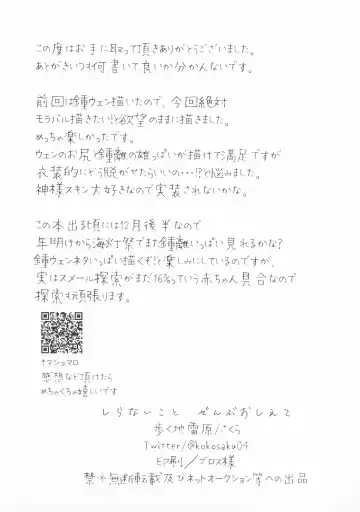 この度はお手に取って頂きありがとうございました。
あとがきいつも何書いて良いか分かんないです。
前回は鍾ウェン描いたので、今回絶対
モラバル描きたい!と欲望のままに描きました。
めっちゃ楽しかったです。
ウェンのお尻と鍾離の雄っぱいが描けて満足ですが
衣装的にどう脱がせたらいいの…!?と悩みました。
神様スキン大好きなので実装されないかな。
この本出る頃には12月後半なので
年明けから海灯祭でまた鍾離いっぱい見れるかな?
鍾ウェンネタいっぱい描くぞ!?楽しみにしているのですが、
実はスメール探索がまだ16%っていう赤ちゃん具合なので
探索も頑張ります。
↑マシュマロ
感想など頂けたら
めちゃくちゃ嬉しいです
しらないこと ぜんぶおしえて
歩く地雷原/さくら
Twitter/@kokosaku04
印刷/ブロス様
禁※無断転載及びネットオークション等への出品